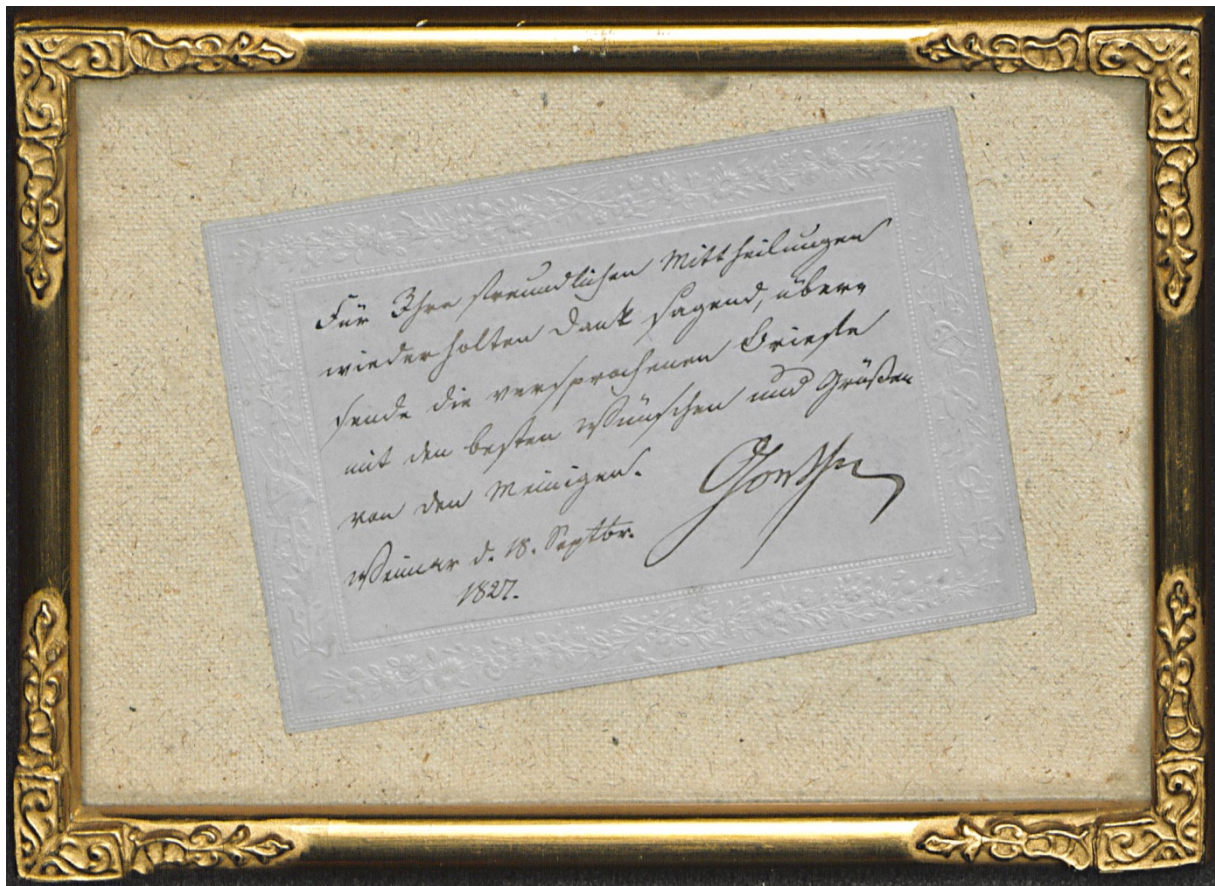 Für Ihre freundlichen Mittheilungen
wiederholten Dank sagend, über-
sende die versprochenen Briefe
mit den besten Wünschen und Grüßen
von den Meinigen.
Goethe
Weimar d. 18. Septbr.
1827.